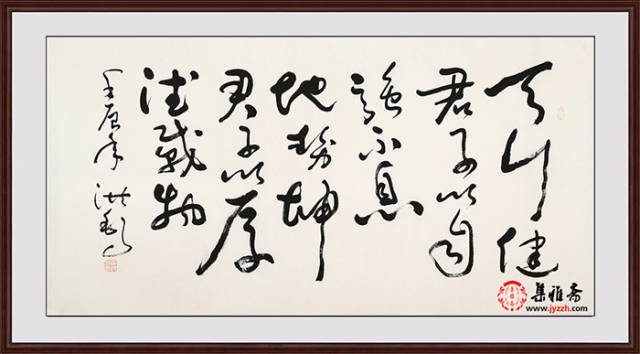 天行健
君子以自
强不息
地势坤
君子以厚
德载物
壬辰年 洪
集雅斋
www.jyzzh.com